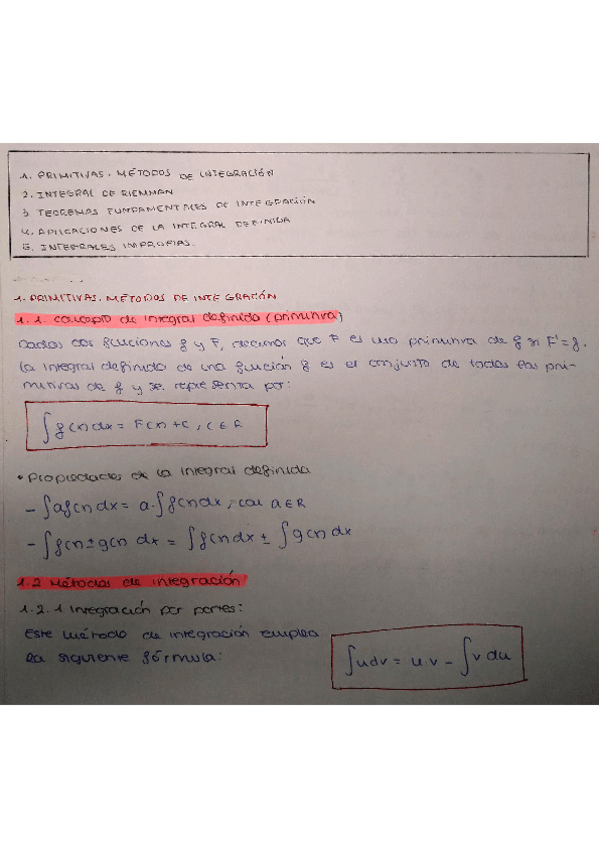 1. PRIMITIVAS. MÉTODOS DE INTEGRACIÓN
2. INTEGRAL DE RIEMMAN
3. TEOREMAS FUNDAMENTALES DE INTEGRACIÓN
4. APLICACIONES DE LA INTEGRAL DEFINIDA
5. INTEGRALES IMPROPIAS.
1. PRIMITIVAS. MÉTODOS DE INTEGRACIÓN
1.1. Concepto de integral definida (primitiva)
Dadas dos funciones f y F, decimos que F es una primitiva de f si F'=f.
La integral definida de una función f es el conjunto de todas las pri-
mitivas de f y se representa por:
∫f(x)dx = F(x)+C, C∈R
• Propiedades de la integral definida
- ∫af(x)dx = a·∫f(x)dx, con a∈R
- ∫f(x)±g(x) dx = ∫f(x)dx ± ∫g(x)dx
1.2 Métodos de integración
1.2.1 Integración por partes:
Este método de integración emplea
la siguiente fórmula:
∫udv = u.v - ∫v du